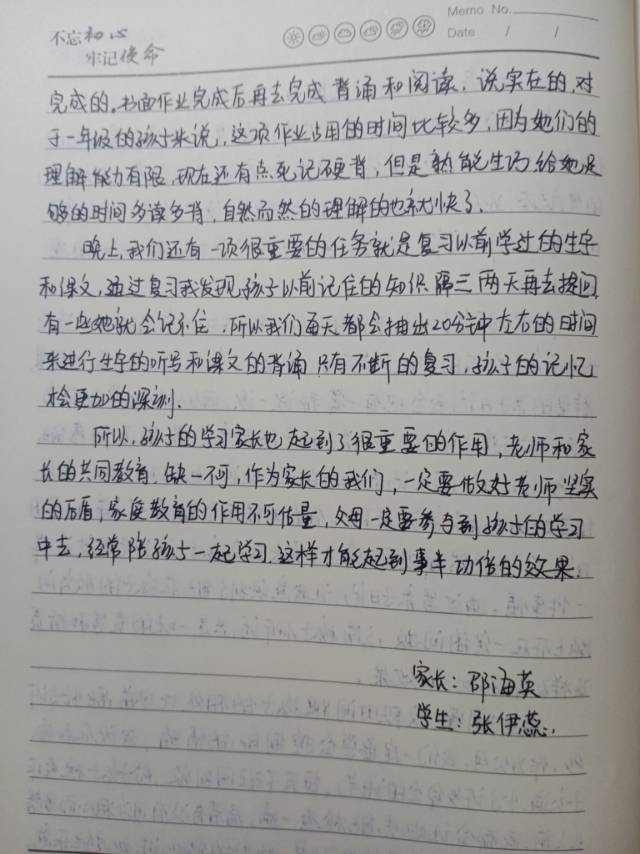 Memo No.
Date / /
不忘初心
牢记使命
完成的。书面作业完成后再去完成背诵和阅读，说实在的，对
于一年级的孩子来说，这项作业占用的时间比较多，因为她们的
理解能力有限，现在还有点死记硬背，但是熟能生巧，给她足
够的时间多读多背，自然而然的理解的也就快了。
晚上，我们还有一项很重要的任务就是复习以前学过的生字
和课文，通过复习我发现孩子以前记住的知识隔三两天再去提问
有一些她就会记不住，所以我们每天都会抽出20分钟左右的时间
来进行生字的听写和课文的背诵，只有不断的复习，孩子的记忆
才会更加的深刻。
所以，孩子的学习家长也起到了很重要的作用，老师和家
长的共同教育，缺一不可，作为家长的我们，一定要做好老师坚实
的后盾，家庭教育的作用不可估量，父母一定要参与到孩子的学习
中去，经常陪孩子一起学习，这样才能起到事半功倍的效果。
家长：邵海英
学生：张伊蕊